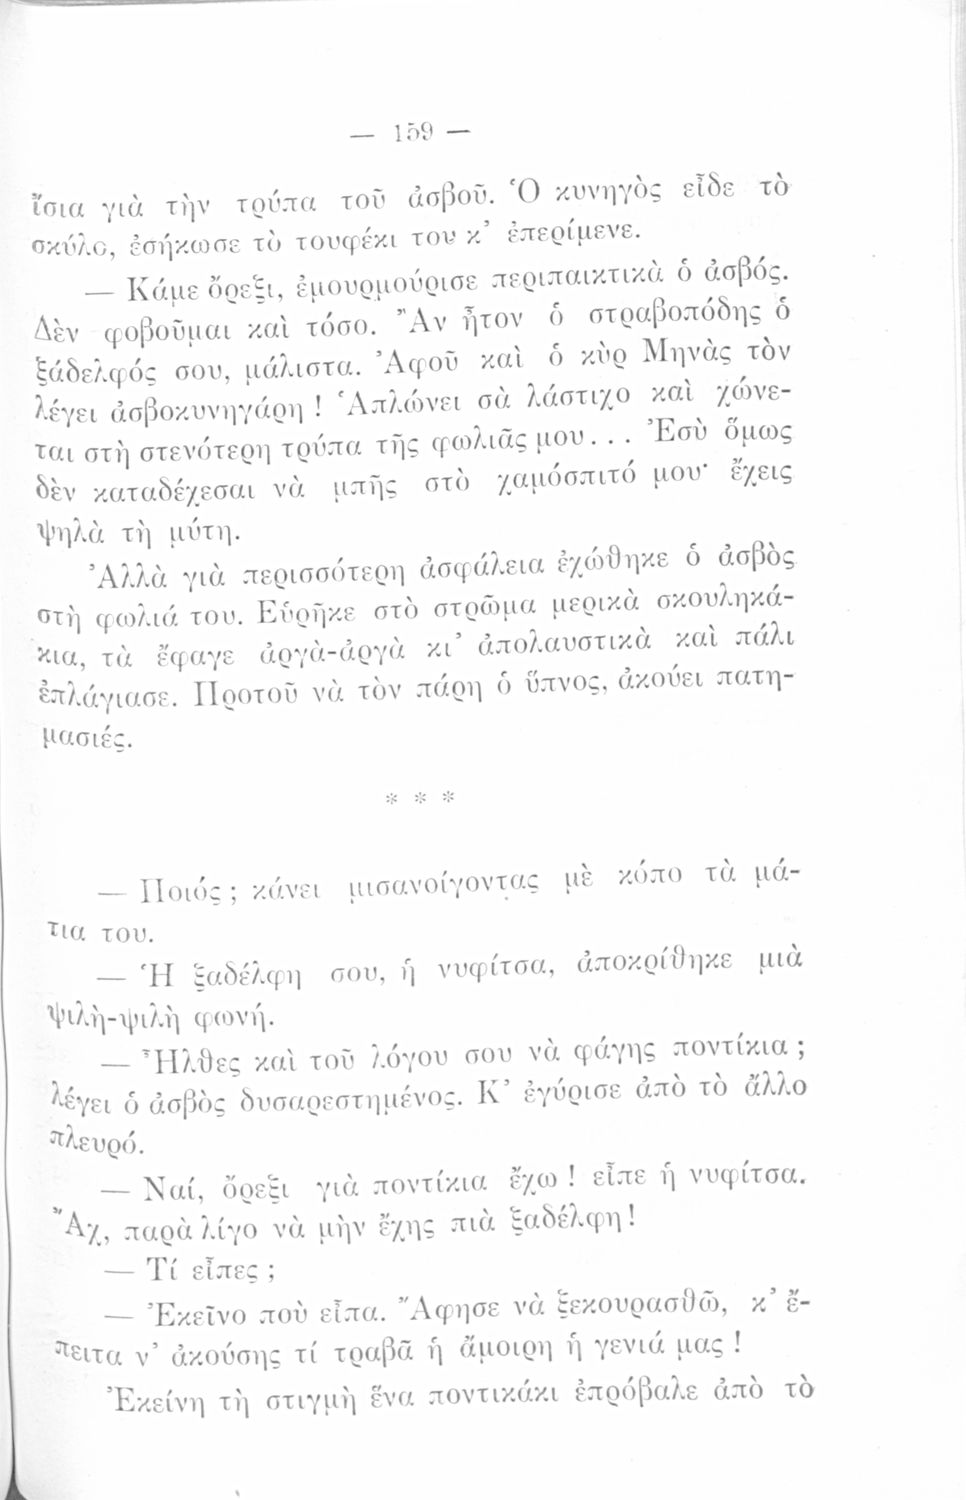 — 159 —
ἴσια γιὰ τὴν τρύπα τοῦ ἀσβοῦ. Ὁ κυνηγὸς εἶδε τὸ
σκύλο, ἐσήκωσε τὸ τουφέκι του κ᾽ ἐπερίμενε.
— Κάμε ὄρεξι, ἐμουρμούρισε περιπαικτικὰ ὁ ἀσβός.
Δὲν φοβοῦμαι καὶ τόσο. Ἂν ἦτον ὁ στραβοπόδης ὁ
ξάδελφός σου, μάλιστα. Ἀφοῦ καὶ ὁ κὺρ Μηνὰς τὸν
λέγει ἀσβοκυνηγάρη ! Ἁπλώνει σὰ λάστιχο καὶ χώνε-
ται στὴ στενότερη τρύπα τῆς φωλιᾶς μου... Ἐσὺ ὅμως
δὲν καταδέχεσαι νὰ μπῆς στὸ χαμόσπιτό μου· ἔχεις
ψηλὰ τὴ μύτη.
Ἀλλὰ γιὰ περισσότερη ἀσφάλεια ἐχώθηκε ὁ ἀσβὸς
στὴ φωλιά του. Εὑρῆκε στὸ στρῶμα μερικὰ σκουληκά-
κια, τὰ ἔφαγε ἀργὰ-ἀργὰ κι᾽ ἀπολαυστικὰ καὶ πάλι
ἐπλάγιασε. Προτοῦ νὰ τὸν πάρη ὁ ὕπνος, ἀκούει πατη-
μασιές.
* * *
— Ποιός ; κάνει μισανοίγοντας μὲ κόπο τὰ μά-
τια του.
— Ἡ ξαδέλφη σου, ἡ νυφίτσα, ἀποκρίθηκε μιὰ
ψιλὴ-ψιλὴ φωνή.
— Ἦλθες καὶ τοῦ λόγου σου νὰ φάγης ποντίκια ;
λέγει ὁ ἀσβὸς δυσαρεστημένος. Κ᾽ ἐγύρισε ἀπὸ τὸ ἄλλο
πλευρό.
— Ναί, ὄρεξι γιὰ ποντίκια ἔχω ! εἶπε ἡ νυφίτσα.
Ἄχ, παρὰ λίγο νὰ μὴν ἔχης πιὰ ξαδέλφη !
— Τί εἶπες ;
— Ἐκεῖνο ποὺ εἶπα. Ἄφησε νὰ ξεκουρασθῶ, κ᾽ ἔ-
πειτα ν᾽ ἀκούσης τί τραβᾶ ἡ ἄμοιρη ἡ γενιά μας !
Ἐκείνη τὴ στιγμὴ ἕνα ποντικάκι ἐπρόβαλε ἀπὸ τὸ